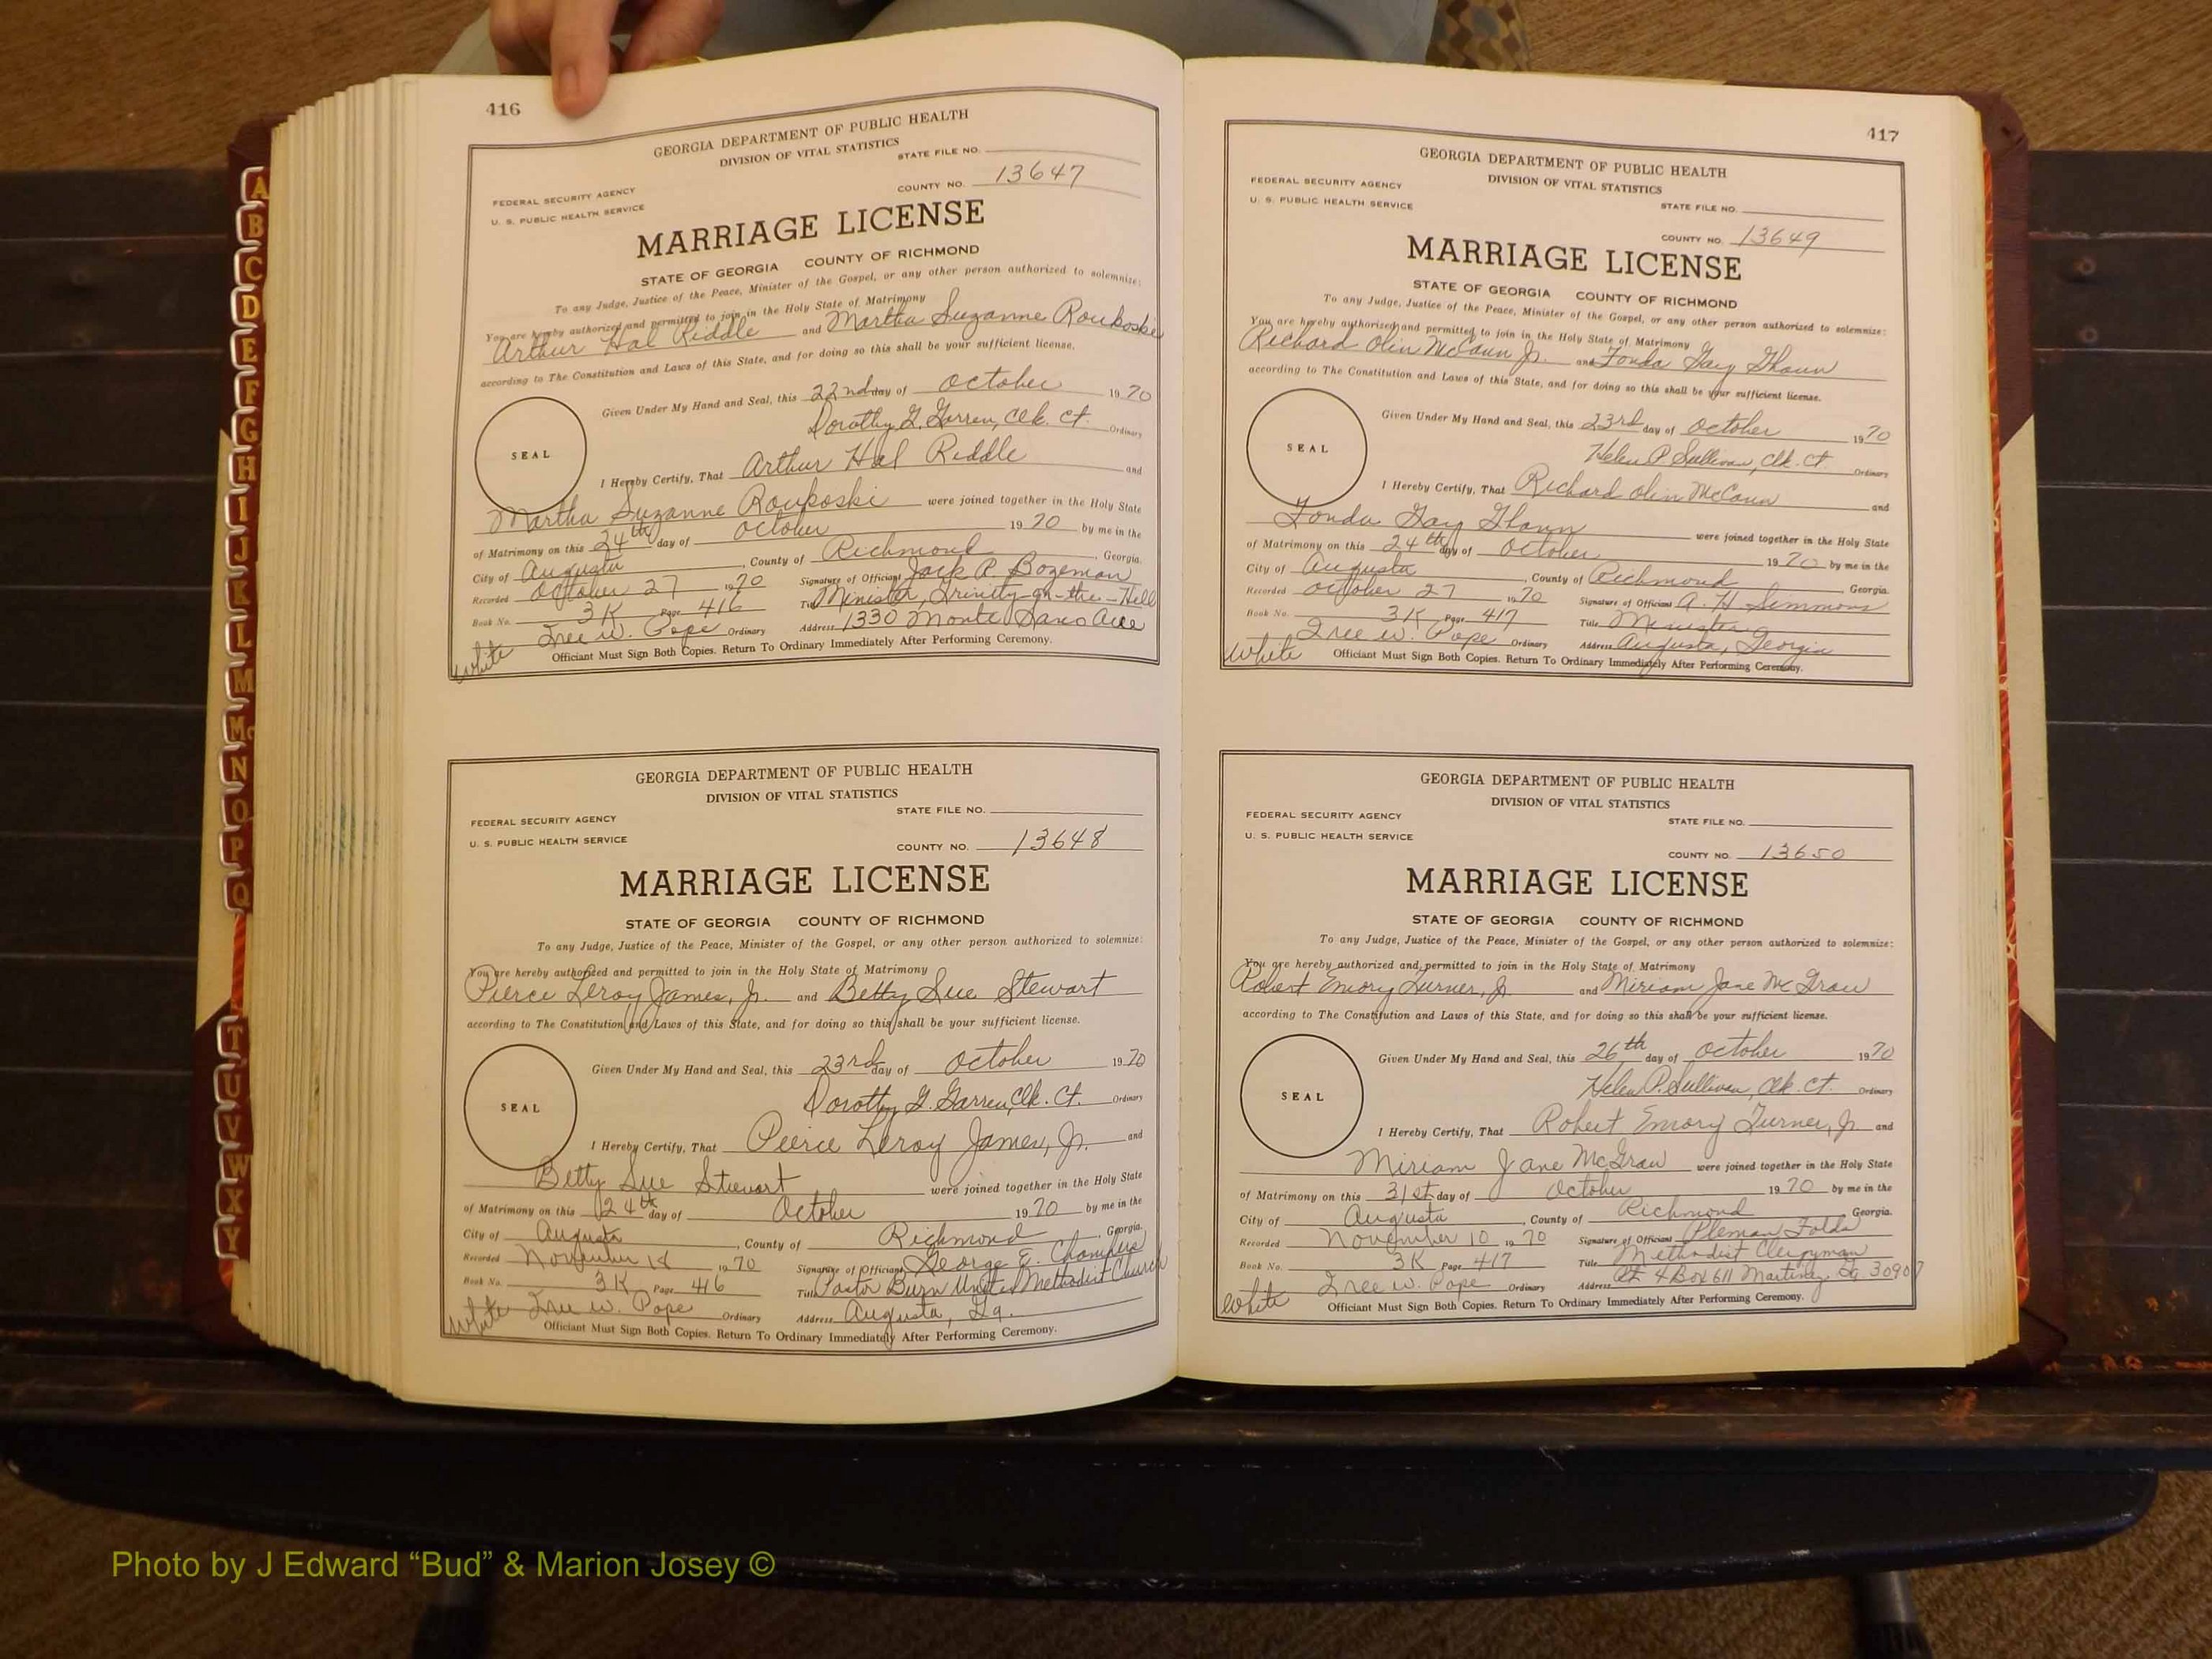 416
GEORGIA DEPARTMENT OF PUBLIC HEALTH
DIVISION OF VITAL STATISTICS
STATE FILE NO.
FEDERAL SECURITY AGENCY
U. S. PUBLIC HEALTH SERVICE
COUNTY NO. 13647
MARRIAGE LICENSE
STATE OF GEORGIA COUNTY OF RICHMOND
To any Judge, Justice of the Peace, Minister of the Gospel, or any other person authorized to solemnize:
You are hereby authorized and permitted to join in the Holy State of Matrimony
Arthur Hal Riddle and Martha Suzanne Roukoski
according to The Constitution and Laws of this State, and for doing so this shall be your sufficient license.
Given Under My Hand and Seal, this 22nd day of October 1970
Dorothy G. Garren, Clk. Ct. Ordinary
SEAL
I Hereby Certify, That Arthur Hal Riddle and
Martha Suzanne Roukoski were joined together in the Holy State
of Matrimony on this 24th day of October 1970 by me in the
City of Augusta, County of Richmond, Georgia.
Recorded October 27 1970 Signature of Official Jack P. Bozeman
Book No. 3K Page 416 Title Minister, Trinity-on-the-Hill
Tree W. Pope Ordinary Address 1330 Monte Sano Ave
White Officiant Must Sign Both Copies. Return To Ordinary Immediately After Performing Ceremony.
GEORGIA DEPARTMENT OF PUBLIC HEALTH
DIVISION OF VITAL STATISTICS
STATE FILE NO.
FEDERAL SECURITY AGENCY
U. S. PUBLIC HEALTH SERVICE
COUNTY NO. 13648
MARRIAGE LICENSE
STATE OF GEORGIA COUNTY OF RICHMOND
To any Judge, Justice of the Peace, Minister of the Gospel, or any other person authorized to solemnize:
You are hereby authorized and permitted to join in the Holy State of Matrimony
Pierce Leroy James, Jr. and Betty Sue Stewart
according to The Constitution and Laws of this State, and for doing so this shall be your sufficient license.
Given Under My Hand and Seal, this 23rd day of October 1970
Dorothy G. Garren, Clk. Ct. Ordinary
SEAL
I Hereby Certify, That Peirce Leroy James, Jr. and
Betty Sue Stewart were joined together in the Holy State
of Matrimony on this 24th day of October 1970 by me in the
City of Augusta, County of Richmond, Georgia.
Recorded November 18 1970 Signature of Official George E. Chambers
Book No. 3K Page 416 Title Pastor Burn United Methodist Church
Tree W. Pope Ordinary Address Augusta, Ga.
White Officiant Must Sign Both Copies. Return To Ordinary Immediately After Performing Ceremony.
417
GEORGIA DEPARTMENT OF PUBLIC HEALTH
DIVISION OF VITAL STATISTICS
FEDERAL SECURITY AGENCY
U. S. PUBLIC HEALTH SERVICE
STATE FILE NO.
COUNTY NO. 13649
MARRIAGE LICENSE
STATE OF GEORGIA COUNTY OF RICHMOND
To any Judge, Justice of the Peace, Minister of the Gospel, or any other person authorized to solemnize:
You are hereby authorized and permitted to join in the Holy State of Matrimony
Richard Olin McCann Jr. and Fonda Gay Ghann
according to The Constitution and Laws of this State, and for doing so this shall be your sufficient license.
Given Under My Hand and Seal, this 23rd day of October 1970
Helen P. Sullivan, Clk. Ct. Ordinary
SEAL
I Hereby Certify, That Richard Olin McCann and
Fonda Gay Ghann were joined together in the Holy State
of Matrimony on this 24th day of October 1970 by me in the
City of Augusta, County of Richmond, Georgia.
Recorded October 27 1970 Signature of Official A. H. Simmons
Book No. 3K Page 417 Title Minister
Tree W. Pope Ordinary Address Augusta, Georgia
White Officiant Must Sign Both Copies. Return To Ordinary Immediately After Performing Ceremony.
GEORGIA DEPARTMENT OF PUBLIC HEALTH
DIVISION OF VITAL STATISTICS
FEDERAL SECURITY AGENCY
STATE FILE NO.
U. S. PUBLIC HEALTH SERVICE
COUNTY NO. 13650
MARRIAGE LICENSE
STATE OF GEORGIA COUNTY OF RICHMOND
To any Judge, Justice of the Peace, Minister of the Gospel, or any other person authorized to solemnize:
You are hereby authorized and permitted to join in the Holy State of Matrimony
Robert Emory Turner, Jr and Miriam Jane McGraw
according to The Constitution and Laws of this State, and for doing so this shall be your sufficient license.
Given Under My Hand and Seal, this 26th day of October 1970
Helen P. Sullivan, Clk. Ct. Ordinary
SEAL
I Hereby Certify, That Robert Emory Turner, Jr. and
Miriam Jane McGraw were joined together in the Holy State
of Matrimony on this 31st day of October 1970 by me in the
City of Augusta, County of Richmond, Georgia.
Recorded November 10 1970 Signature of Official Pleman Folds
Book No. 3K Page 417 Title Methodist Clergyman
Tree W. Pope Ordinary Address Rt 4 Box 611 Martinez, Ga 30907
White Officiant Must Sign Both Copies. Return To Ordinary Immediately After Performing Ceremony.
A
B
C
D
E
F
G
H
I
J
K
L
M
Mc
N
O
P
Q
T
U
V
W
X
Y
Photo by J Edward “Bud” & Marion Josey ©